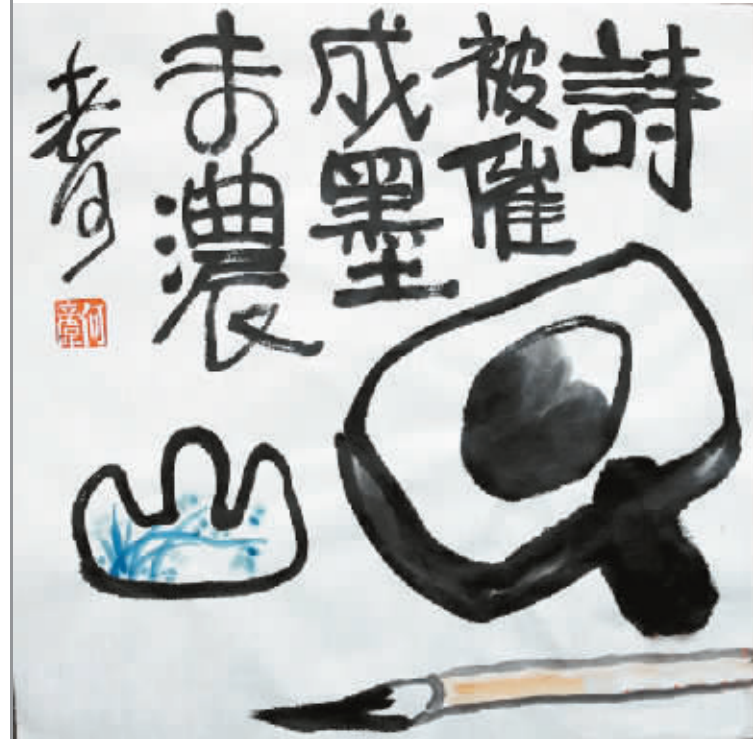 詩
被催
成墨
未濃
老可